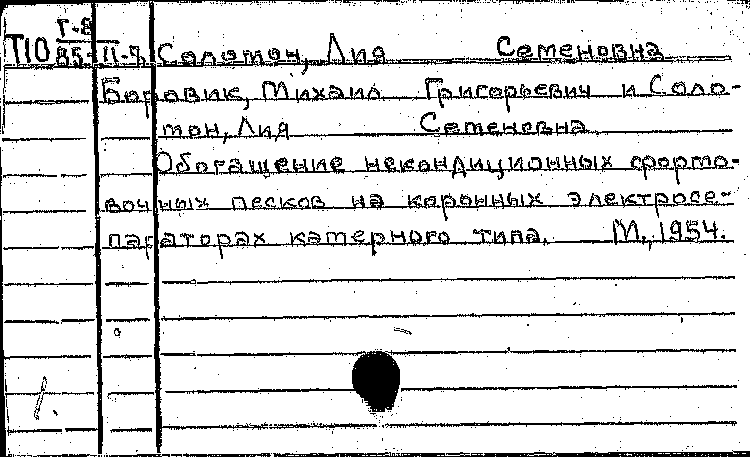 Г-8
Т10 85-11-8 Соломон, Лия Семеновна
Боровик, Михаил Григорьевич и Соло-
мон, Лия Семеновна
Обогащение некондиционных формо-
вочных песков на коронных электросе-
параторах камерного типа. М., 1954.